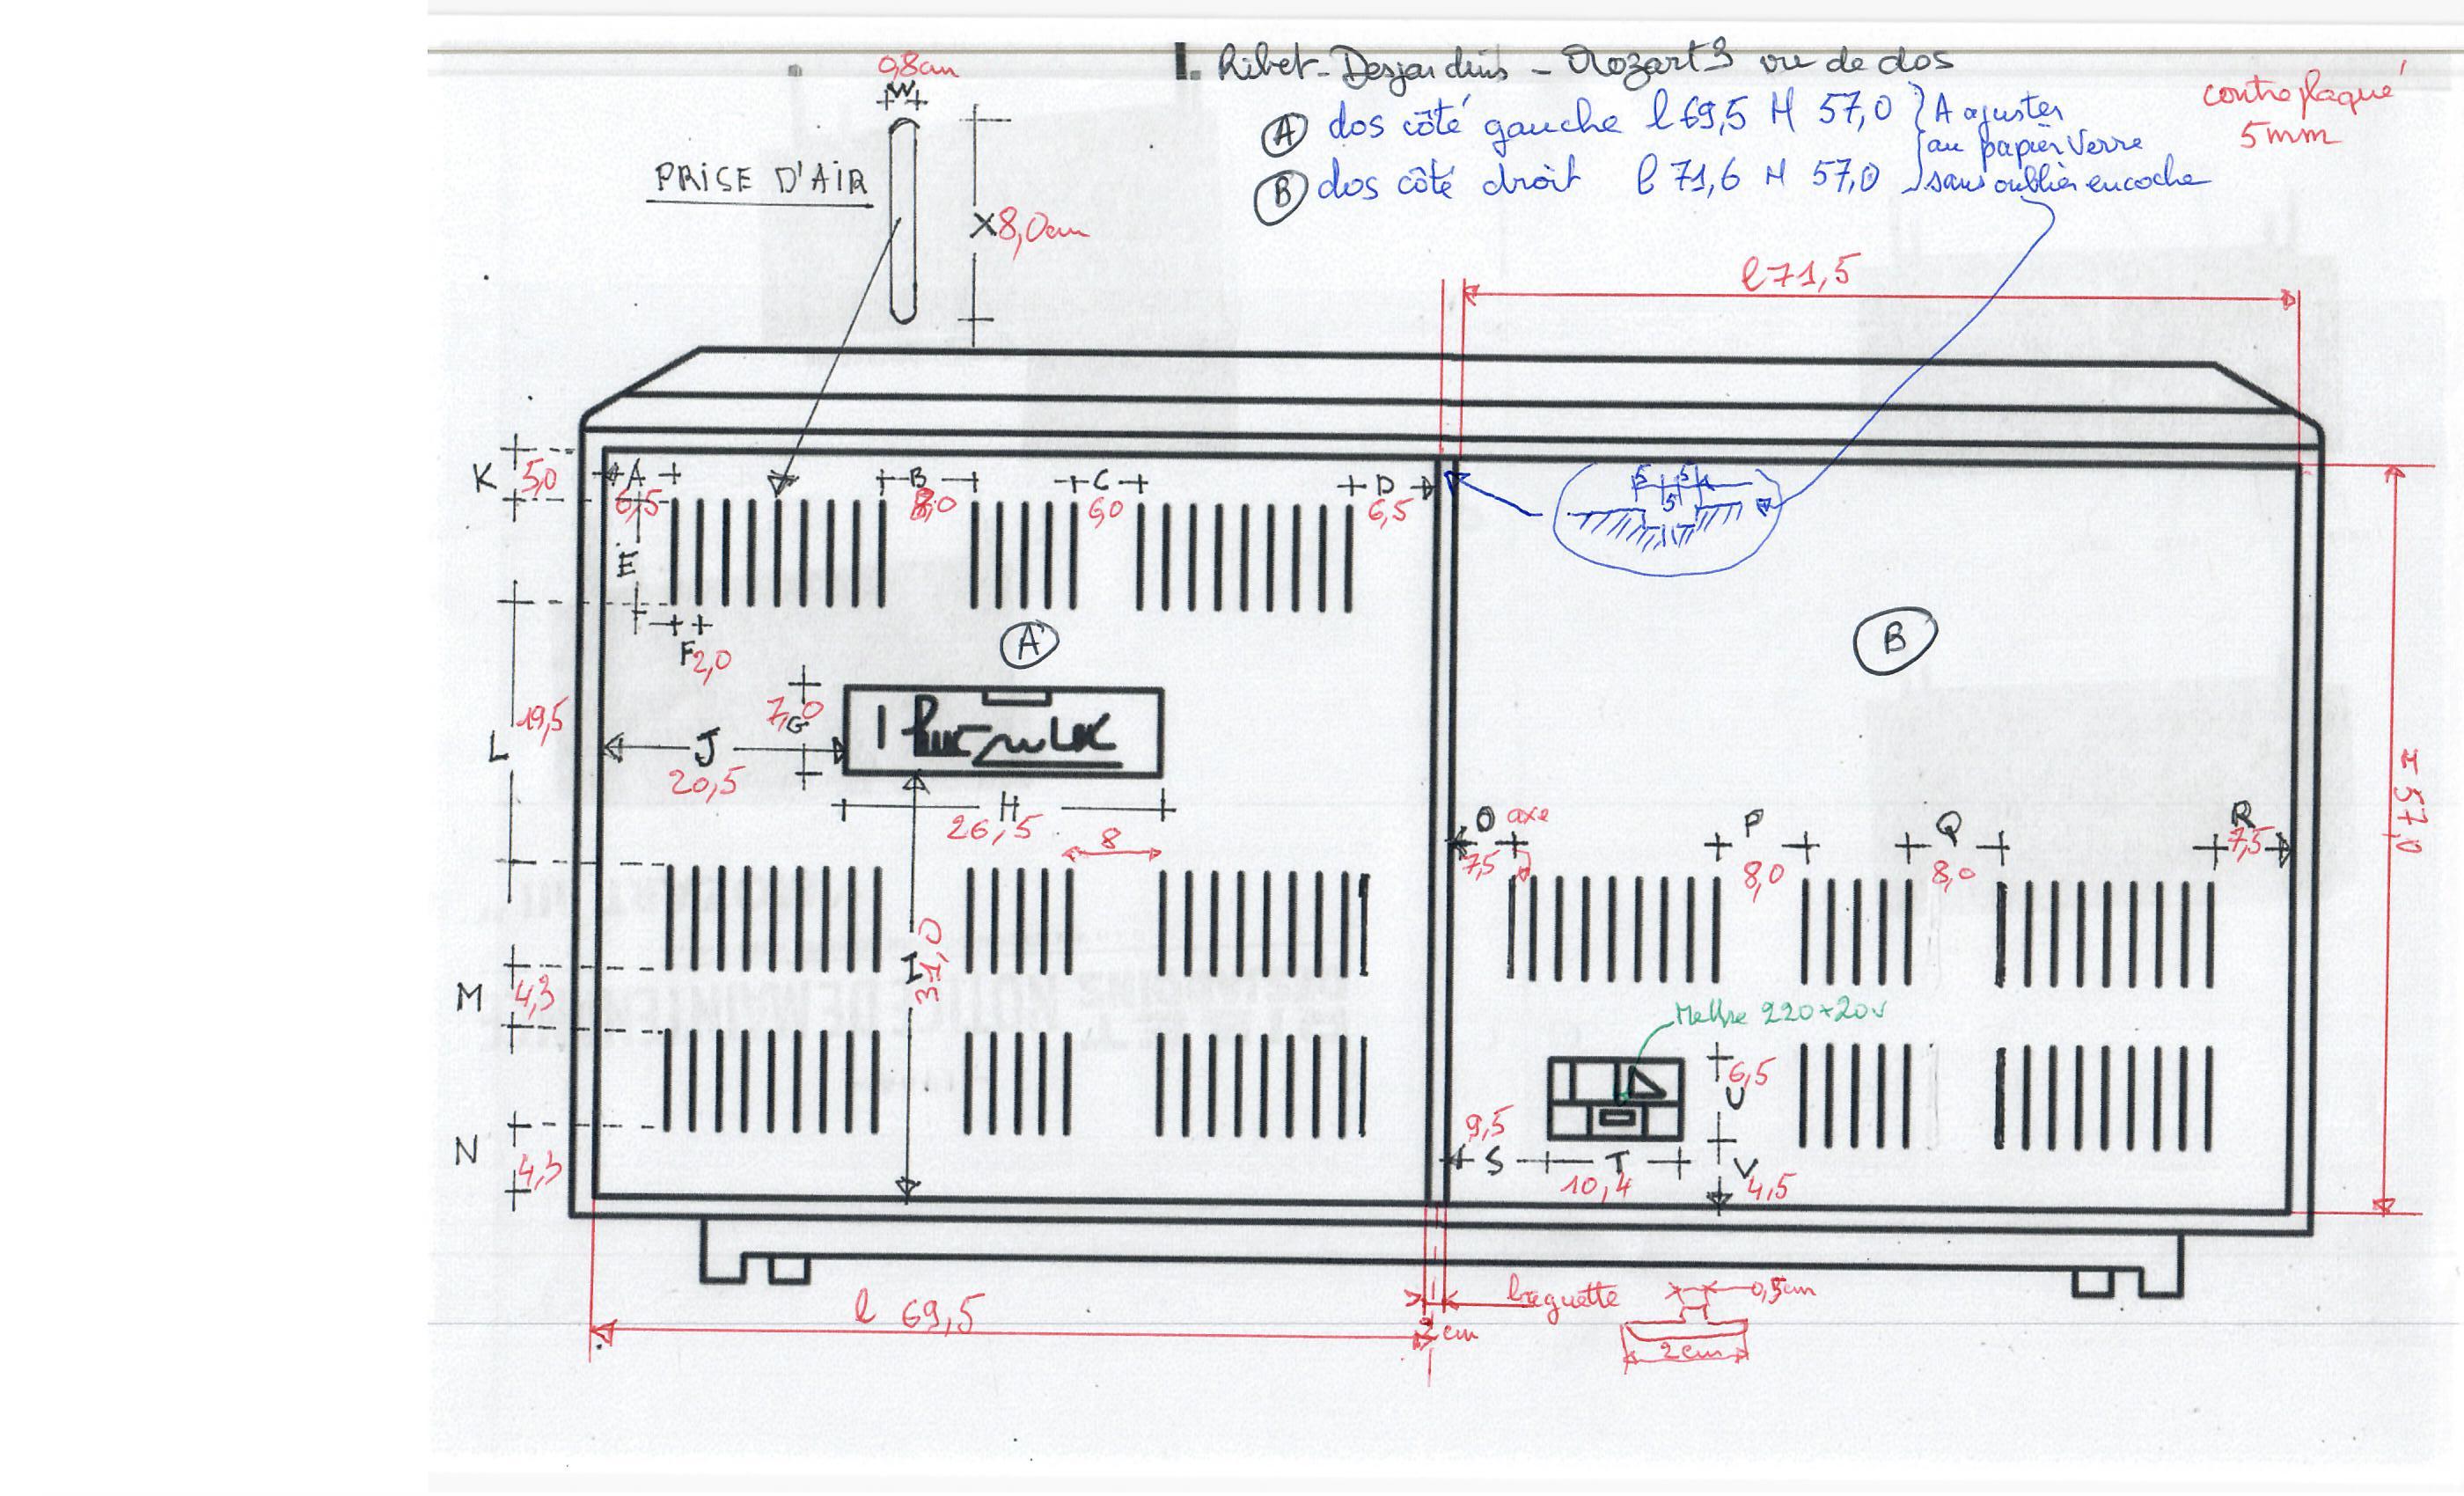 I. Ribet-Desjardins - Mozart 3 vu de dos
A dos côté gauche l 69,5 H 57,0 } A ajuster
B dos côté droit l 71,6 H 57,0
au papier verre
sans oublier encoche
contreplaqué
5 mm
0,8cm
W
PRISE D'AIR
X 8,0cm
l 71,5
K 5,0
A
6,5
B
8,0
C
6,0
D
6,5
5 5
5
E
F 2,0
A
B
7,0
G
L 19,5
J
20,5
H
26,5
8
O axe
7,5
P
8,0
Q
8,0
R
7,5
57,0
I
31,0
M 4,3
Mettre 220+20v
6,5
U
N 4,3
9,5
S
T
10,4
V
4,5
l 69,5
cm
baguette
0,5cm
2cm